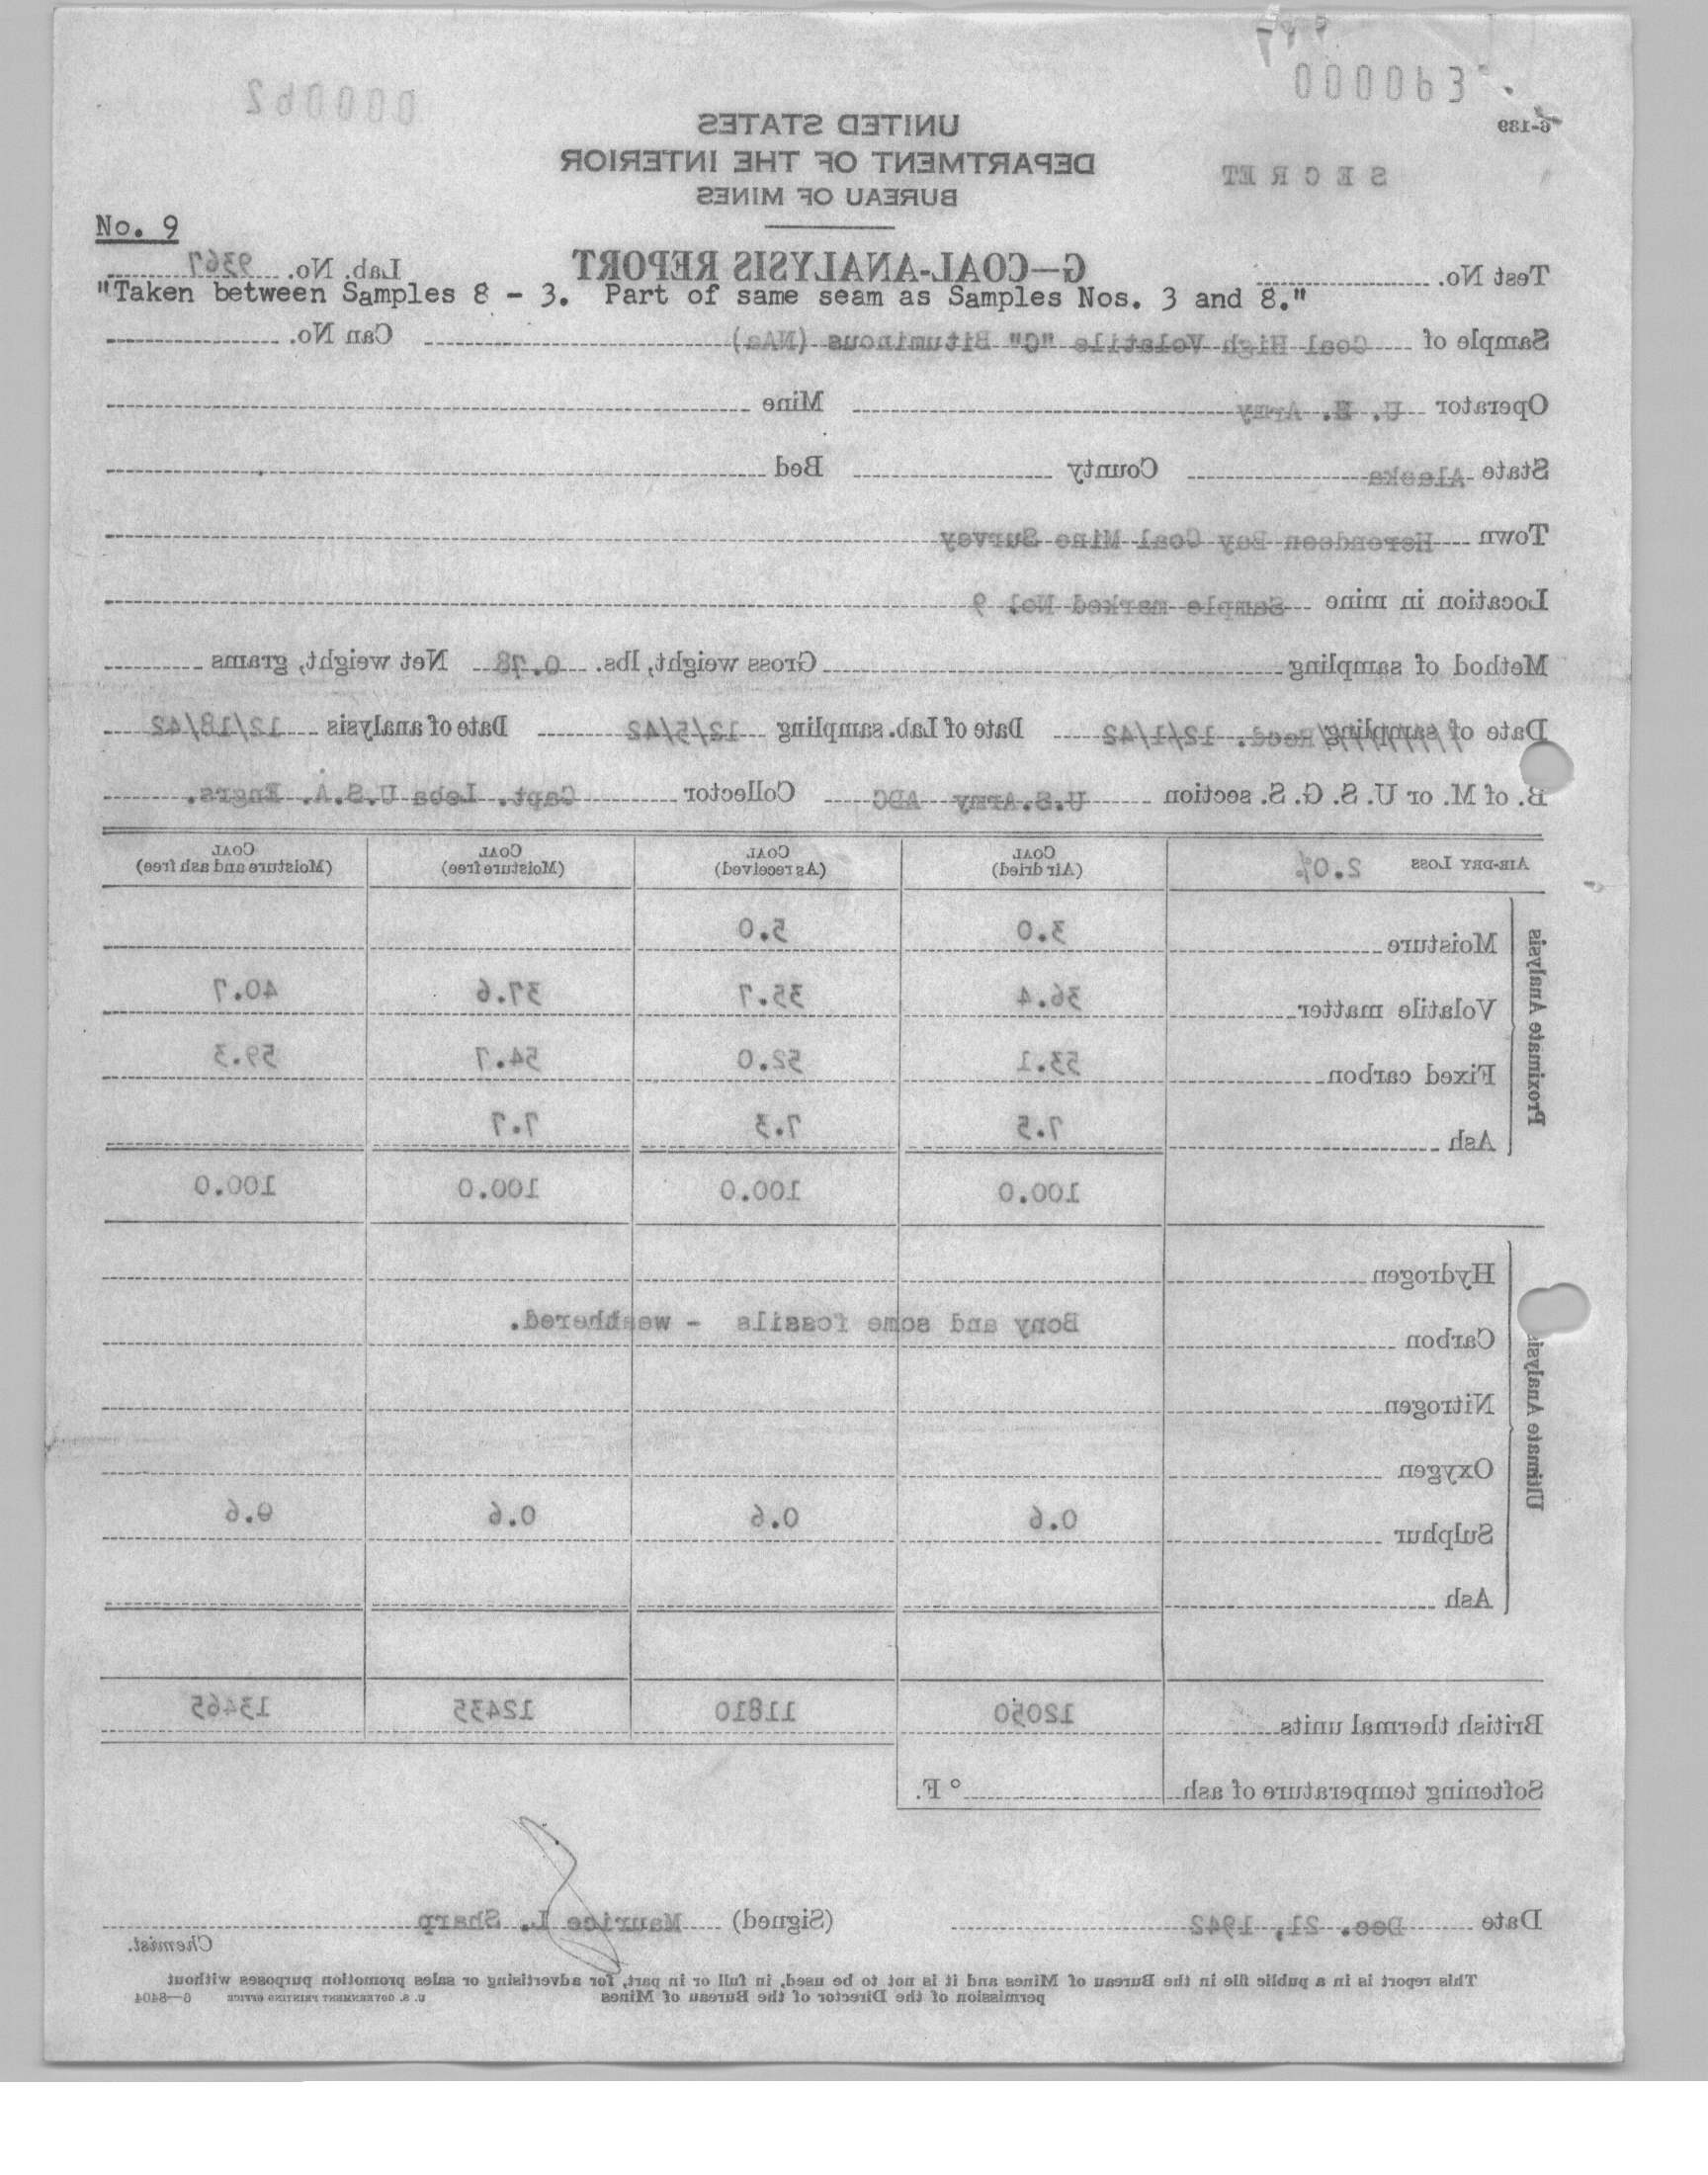 000062
000063
6-189
UNITED STATES
DEPARTMENT OF THE INTERIOR
BUREAU OF MINES
SECRET
No. 9
G—COAL-ANALYSIS REPORT
Test No.
Lab. No. 9367
"Taken between Samples 8 - 3. Part of same seam as Samples Nos. 3 and 8."
Sample of Coal High Volatile "C" Bituminous (NAa) Can No.
Operator U. S. Army Mine
State Alaska County Bed
Town Herendeen Bay Coal Mine Survey
Location in mine Sample marked No. 9
Method of sampling Gross weight, lbs. 0.78 Net weight, grams
Date of sampling Recd. 12/1/42 Date of Lab. sampling 12/5/42 Date of analysis 12/18/42
B. of M. or U. S. G. S. section U.S. Army ADC Collector Capt. Leba U.S.A. Engrs.
AIR-DRY LOSS 2.0% COAL (Air dried) COAL (As received) COAL (Moisture free) COAL (Moisture and ash free)
Proximate Analysis
Moisture 3.0 5.0
Volatile matter 36.4 35.7 37.6 40.7
Fixed carbon 53.1 52.0 54.7 59.3
Ash 7.5 7.3 7.7
100.0 100.0 100.0 100.0
Ultimate Analysis
Hydrogen
Bony and some fossils - weathered.
Carbon
Nitrogen
Oxygen
Sulphur 0.6 0.6 0.6 0.6
Ash
British thermal units 12050 11810 12435 13465
Softening temperature of ash ° F.
Date Dec. 21, 1942 (Signed) Maurice L. Sharp
Chemist.
This report is in a public file in the Bureau of Mines and it is not to be used, in full or in part, for advertising or sales promotion purposes without
permission of the Director of the Bureau of Mines
U. S. GOVERNMENT PRINTING OFFICE 6—8404